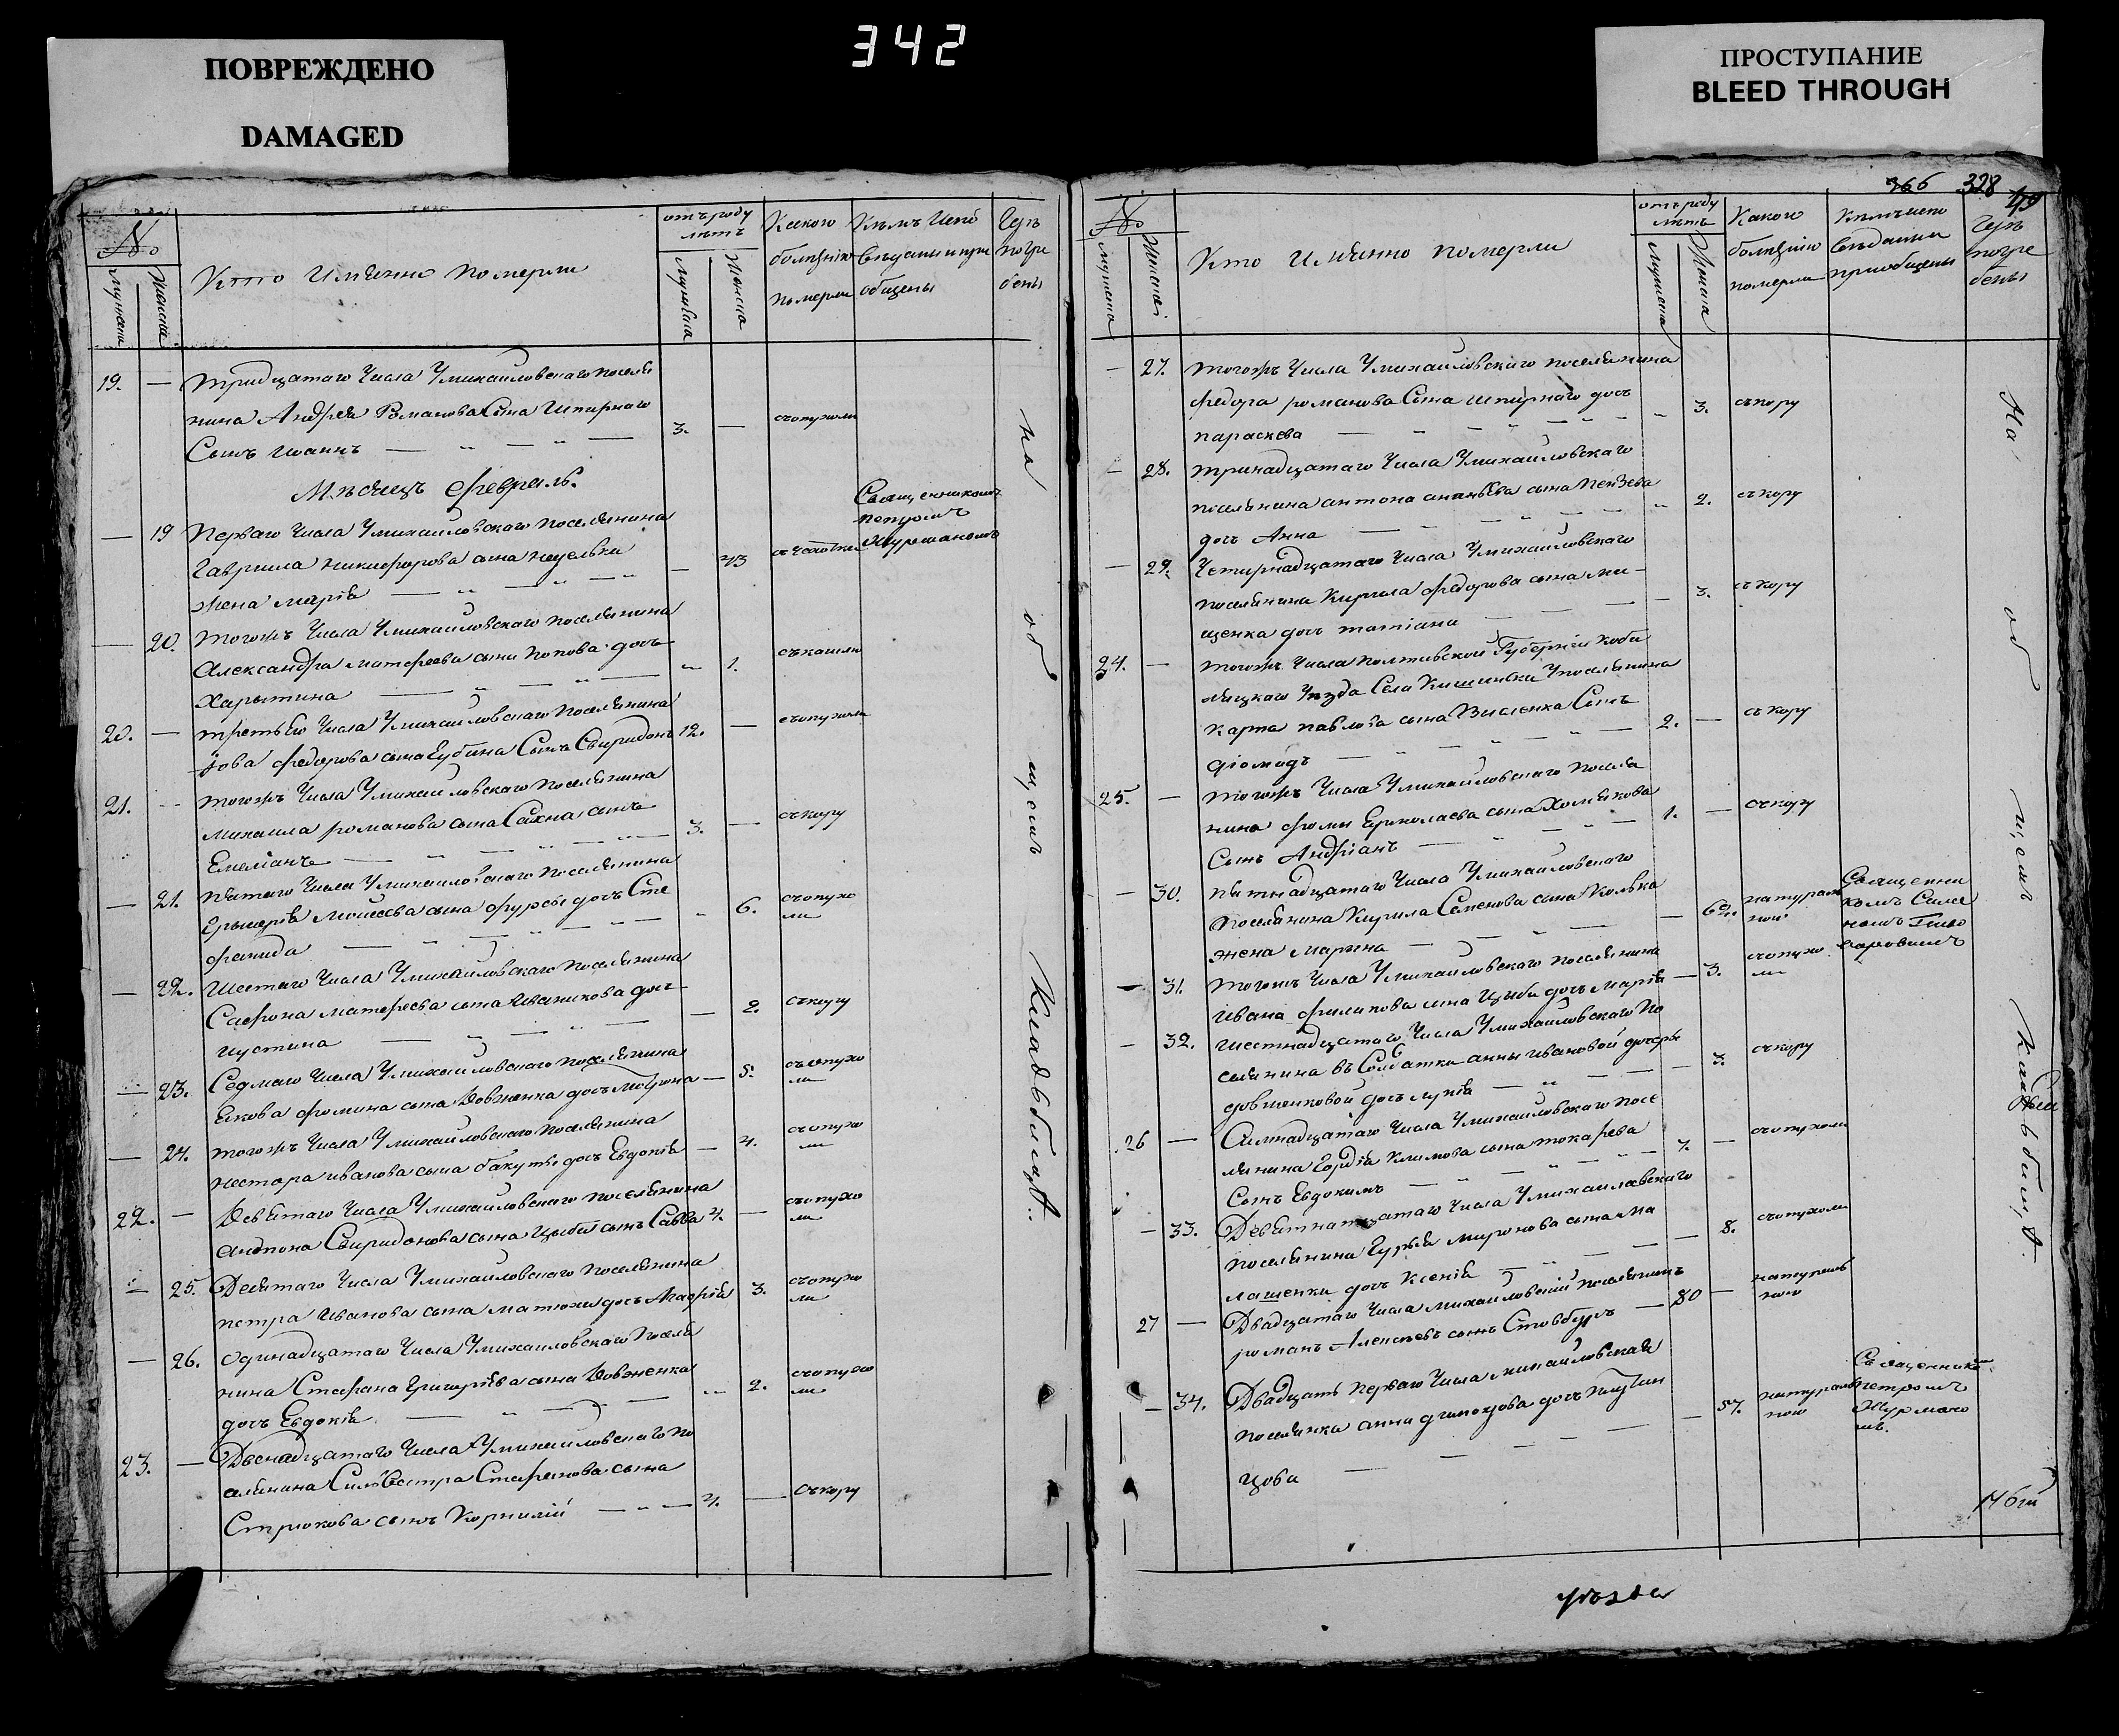 342
ПОВРЕЖДЕНО
DAMAGED
ПРОСТУПАНИЕ
BLEED THROUGH
366 328
№
Кто имянно померли
отъ роду
лѣтъ
Какою
болезнію
померли
Кемъ исповѣданы и при
общены
Где
погре
бены
19. — тридцатаго числа Умихаиловскаго поселя
нина Андрея Романова сына Шпирнаго
Сынъ иоаннъ 3. — съопухоли
Мѣсяцъ февраль.
— 19 Перваго числа Умихаиловскаго поселянина
Гавриила никифорова сына
жена марія — 43 съчахотки
Священникомъ
петромъ
Журманомъ
— 20. тогожъ числа Умихаиловскаго поселянина
Александра матфеева сына попова дочь
Харытина 1. съкашлю
20. — третьею числа Умихаиловскаго поселянина
федорова сына Губина Сынъ Свиридонъ 12. — съопухоли
21. — тогожъ числа Умихаиловскаго поселянина
михаила романова сына Сахна сынъ
Емеліанъ 3. — съкору
— 21. пятаго числа Умихаиловскаго поселянина
моисеева сына фурсы дочь Сте
фанида 6. съопухо
ли
— 22. шестаго числа Умихаиловскаго поселянина
Сафрона матфеева сына Иваникова дочь
иустина — 2. съкору
— 23. Седмаго числа Умихаиловскаго поселянина
Якова фомина сына Довженка дочь мотрона — 5. съопухо
ли
— 24. тогожъ числа Умихаиловскаго поселянина
нестора иванова сына бакуты дочь Евдокія — 4. съопухо
ли
22. — Девятаго числа Умихаиловскаго поселянина
Свиридонова сына Цыбы сынъ Савва 4. — съопухо
ли
— 25. Десятаго числа Умихаиловскаго поселянина
петра Иванова сына матюхи дочь Агафія 3. съопухо
ли
— 26. одинадцатаго числа Умихаиловскаго поселя
нина Стефана Григоріева сына Довженка
дочь Евдокія 2. съопухо
ли
23. — Двенадцатаго числа Умихаиловскаго по
селянина Силвестра Стефанова сына
Стрюкова сынъ Корнилій 4. — съкору
на об щемъ Кладьбищѣ.
№
Кто имянно померли
отъ роду
лѣтъ
Какою
болезнію
померли
Кемъ испо
вѣданы
приобщены
Где
погре
бены
— 27. тогожъ числа Умихаиловскаго поселянина
федора романова Сына шпирнаго дочь
параскева 3. съкору
— 28. тринадцатаго числа Умихаиловскаго
поселянина антона ананьева сына
дочь Анна 2. съкору
— 29. Четырнадцатаго числа Умихаиловскаго
поселянина Кирила федорова сына ми-
щенка дочь татіана — 3. съкору
24. — тогожъ числа полтавской Губерніи коби
ляцкаго уѣзда Села Кишинки поселянина
карпа павлова сына Висленка Сынъ
діомидъ 2. — съкору
25. — тогожъ числа Умихаиловскаго поселя
нина фомы Ермолаева сына Хомякова
Сынъ Андріанъ 1. — съкору
— 30. пятнадцатаго числа Умихаиловскаго
поселянина Кирила Семенова сына Колька
жена марина — 69. натураль
ною
Священни
комъ Симе
ономъ
— 31. тогожъ числа Умихаиловскаго поселянина
ивана филипова сына Цыбы дочь марія — 3. съопухо
ли
— 32. шестнадцатаго числа Умихаиловскаго по
селянина въ Солдатки анны ивановой дочери
довженковой дочь — 3. съкору
26 — Симнадцатаго числа Умихаиловскаго посе
лянина Гордія Климова сына токарева
Сынъ Евдокимъ 7. — съопухоли
— 33. Девятнатцатаго числа Умихаиловскаго
поселянина Гурія миронова сына ма
лашенки дочь Ксенія — 8. съопухоли
27 — Двадцатаго числа михаиловскій поселянинъ
романъ Алексѣевъ сынъ Стовбуръ — 80 — натураль
ною
— 34. Двадцать перваго числа михаиловская
поселянка анна дочь
цова — 57. натураль
ною
Священнико
петромъ
Журмано
мъ.
На об щемъ Кладьбищѣ.
уѣзда